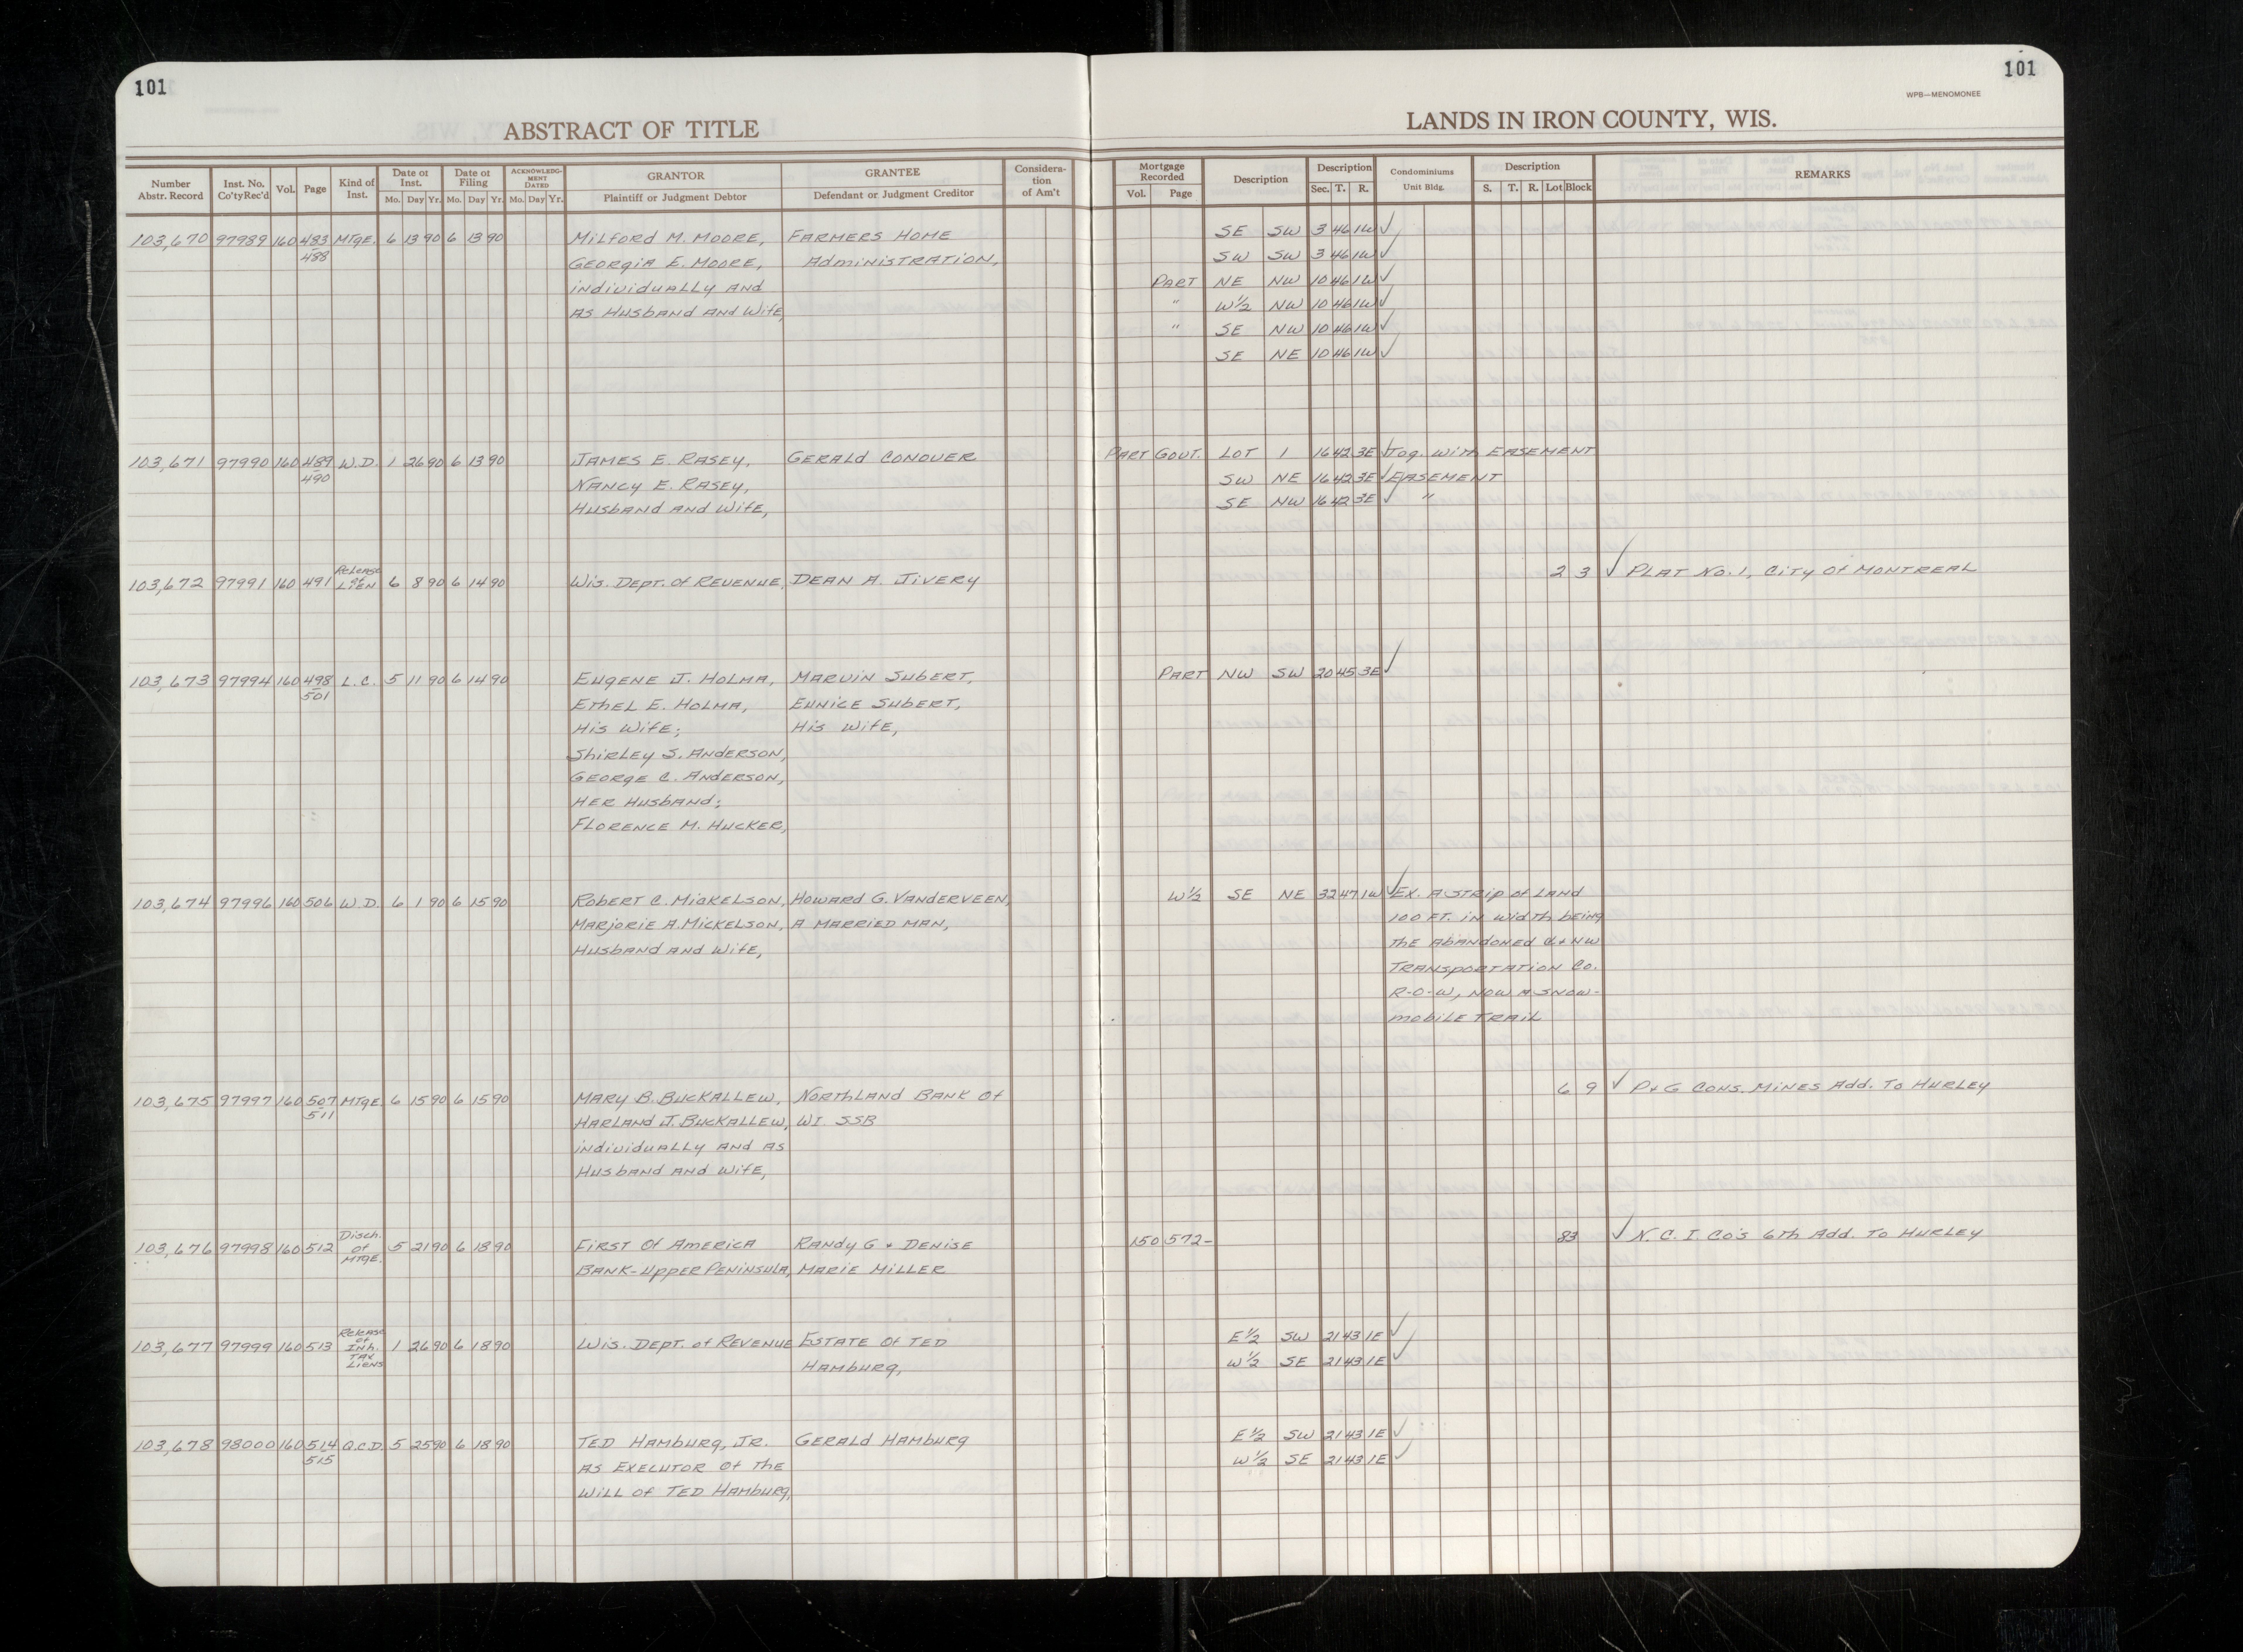 101
101
WPB—MENOMONEE
ABSTRACT OF TITLE
LANDS IN IRON COUNTY, WIS.
Number Abstr. Record | Inst. No. Co'ty Rec'd | Vol. | Page | Kind of Inst. | Date of Inst. Mo. Day Yr. | Date of Filing Mo. Day Yr. | ACKNOWLEDGMENT DATED Mo. Day Yr. | GRANTOR Plaintiff or Judgment Debtor | GRANTEE Defendant or Judgment Creditor | Consideration of Am't | Mortgage Recorded Vol. Page | Description | Description Sec. T. R. | Condominiums Unit Bldg. | Description S. T. R. Lot Block | REMARKS
103,670 97989 160 483 MTGE. 6 13 90 6 13 90 MILFORD M. MOORE, FARMERS HOME SE SW 3 46 1W ✓
488 GEORGIA E. MOORE, ADMINISTRATION, SW SW 3 46 1W ✓
INDIVIDUALLY AND PART NE NW 10 46 1W ✓
AS HUSBAND AND WIFE, " W½ NW 10 46 1W ✓
" SE NW 10 46 1W ✓
SE NE 10 46 1W ✓
103,671 97990 160 489 W.D. 1 26 90 6 13 90 JAMES E. RASEY, GERALD CONOUER PART GOUT. LOT 1 16 42 3E ✓ Tog. WITH EASEMENT
490 NANCY E. RASEY, SW NE 16 42 3E ✓ EASEMENT
HUSBAND AND WIFE, SE NW 16 42 3E ✓ "
103,672 97991 160 491 Release of LIEN 6 8 90 6 14 90 WIS. DEPT. OF REVENUE, DEAN A. JIVERY 2 3 ✓ PLAT NO. 1, CITY OF MONTREAL
103,673 97994 160 498 L.C. 5 11 90 6 14 90 EUGENE J. HOLMA, MARVIN SUBERT, PART NW SW 20 45 3E ✓
501 ETHEL E. HOLMA, EUNICE SUBERT,
HIS WIFE; HIS WIFE,
SHIRLEY S. ANDERSON,
GEORGE C. ANDERSON,
HER HUSBAND;
FLORENCE M. HUCKER,
103,674 97996 160 506 W.D. 6 1 90 6 15 90 ROBERT C. MICKELSON, HOWARD G. VANDERVEEN, W½ SE NE 32 47 1W ✓ EX. A STRIP OF LAND
MARJORIE A. MICKELSON, A MARRIED MAN, 100 FT. IN WIDTH BEING
HUSBAND AND WIFE, THE ABANDONED C+NW
TRANSPORTATION CO.
R-O-W, NOW A SNOW-
MOBILE TRAIL
103,675 97997 160 507 MTGE. 6 15 90 6 15 90 MARY B. BUCKALLEW, NORTHLAND BANK OF 6 9 ✓ P+G CONS. MINES ADD. TO HURLEY
511 HARLAND J. BUCKALLEW, WI. SSB
INDIVIDUALLY AND AS
HUSBAND AND WIFE,
103,676 97998 160 512 Disch. of MTGE. 5 21 90 6 18 90 FIRST OF AMERICA RANDY G + DENISE 150 572- 83 ✓ N. C. I. CO'S 6TH ADD. TO HURLEY
BANK-UPPER PENINSULA, MARIE MILLER
103,677 97999 160 513 Release of Inh. TAX LIENS 1 26 90 6 18 90 WIS. DEPT. OF REVENUE ESTATE OF TED E½ SW 21 43 1E ✓
HAMBURG, W½ SE 21 43 1E ✓
103,678 98000 160 514 Q.C.D. 5 25 90 6 18 90 TED HAMBURG, JR. GERALD HAMBURG E½ SW 21 43 1E ✓
515 AS EXECUTOR OF THE W½ SE 21 43 1E ✓
WILL OF TED HAMBURG,